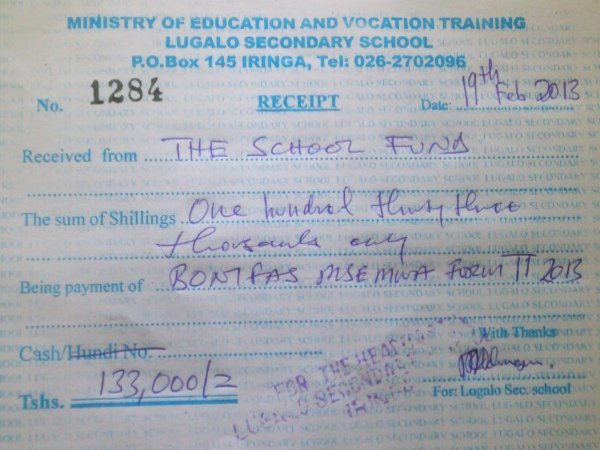 MINISTRY OF EDUCATION AND VOCATION TRAINING
LUGALO SECONDARY SCHOOL
P.O.Box 145 IRINGA, Tel: 026-2702096
No. 1284 RECEIPT Date: 19th Feb 2013
Received from THE SCHOOL FUND
The sum of Shillings One hundred thirty three
thousands only
Being payment of BONIFAS MSEMWA FORM II 2013
Cash/Hundi No. With Thanks
Tshs. 133,000/= For: Lugalo Sec. school
FOR THE HEADMASTER
LUGALO SECONDARY
IRINGA